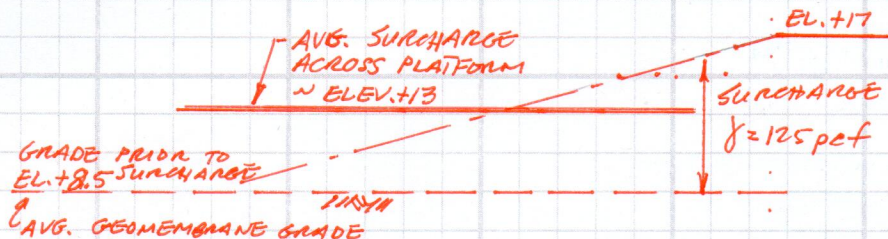 EL. +17
AVG. SURCHARGE
ACROSS PLATFORM
~ ELEV. +13
SURCHARGE
γ = 125 pcf
GRADE PRIOR TO
EL. +8.5 SURCHARGE
AVG. GEOMEMBRANE GRADE